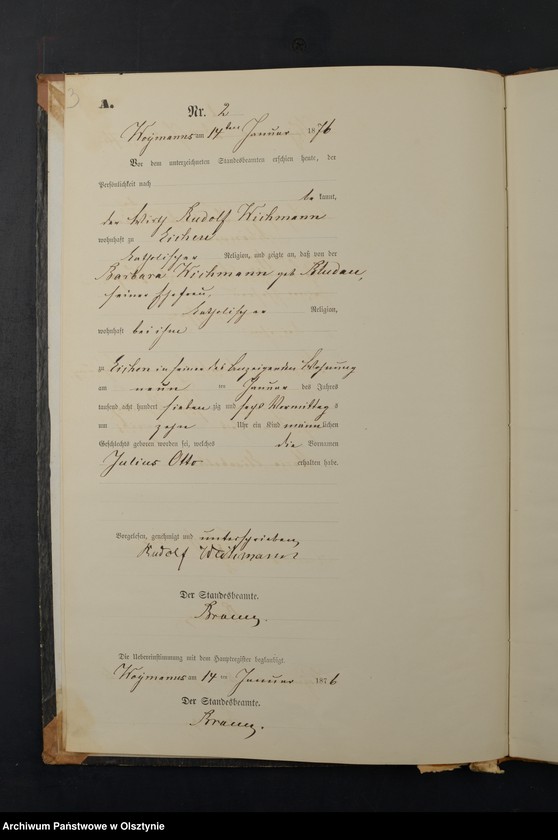 3
A.
Nr. 2
Woymanns am 14ten Januar 1876
Vor dem unterzeichneten Standesbeamten erschien heute, der
Persönlichkeit nach
be kannt,
der Wirth Rudolf Wichmann
wohnhaft zu Eichen
katholischer Religion, und zeigte an, daß von der
Barbara Wichmann geb Bludau,
seiner Ehefrau,
katholischer Religion,
wohnhaft bei ihm
zu Eichen in seiner des Anzeigenden Wohnung
am neun ten Januar des Jahres
tausend acht hundert sieben zig und sechs Vormittag s
um zehn Uhr ein Kind männ lichen
Geschlechts geboren worden sei, welches die Vornamen
Julius Otto erhalten habe.
Vorgelesen, genehmigt und unterschrieben,
Rudolf Wichmann
Der Standesbeamte.
Die Uebereinstimmung mit dem Hauptregister beglaubigt.
Woymanns am 14 ten Januar 1876
Der Standesbeamte.
Archiwum Państwowe w Olsztynie